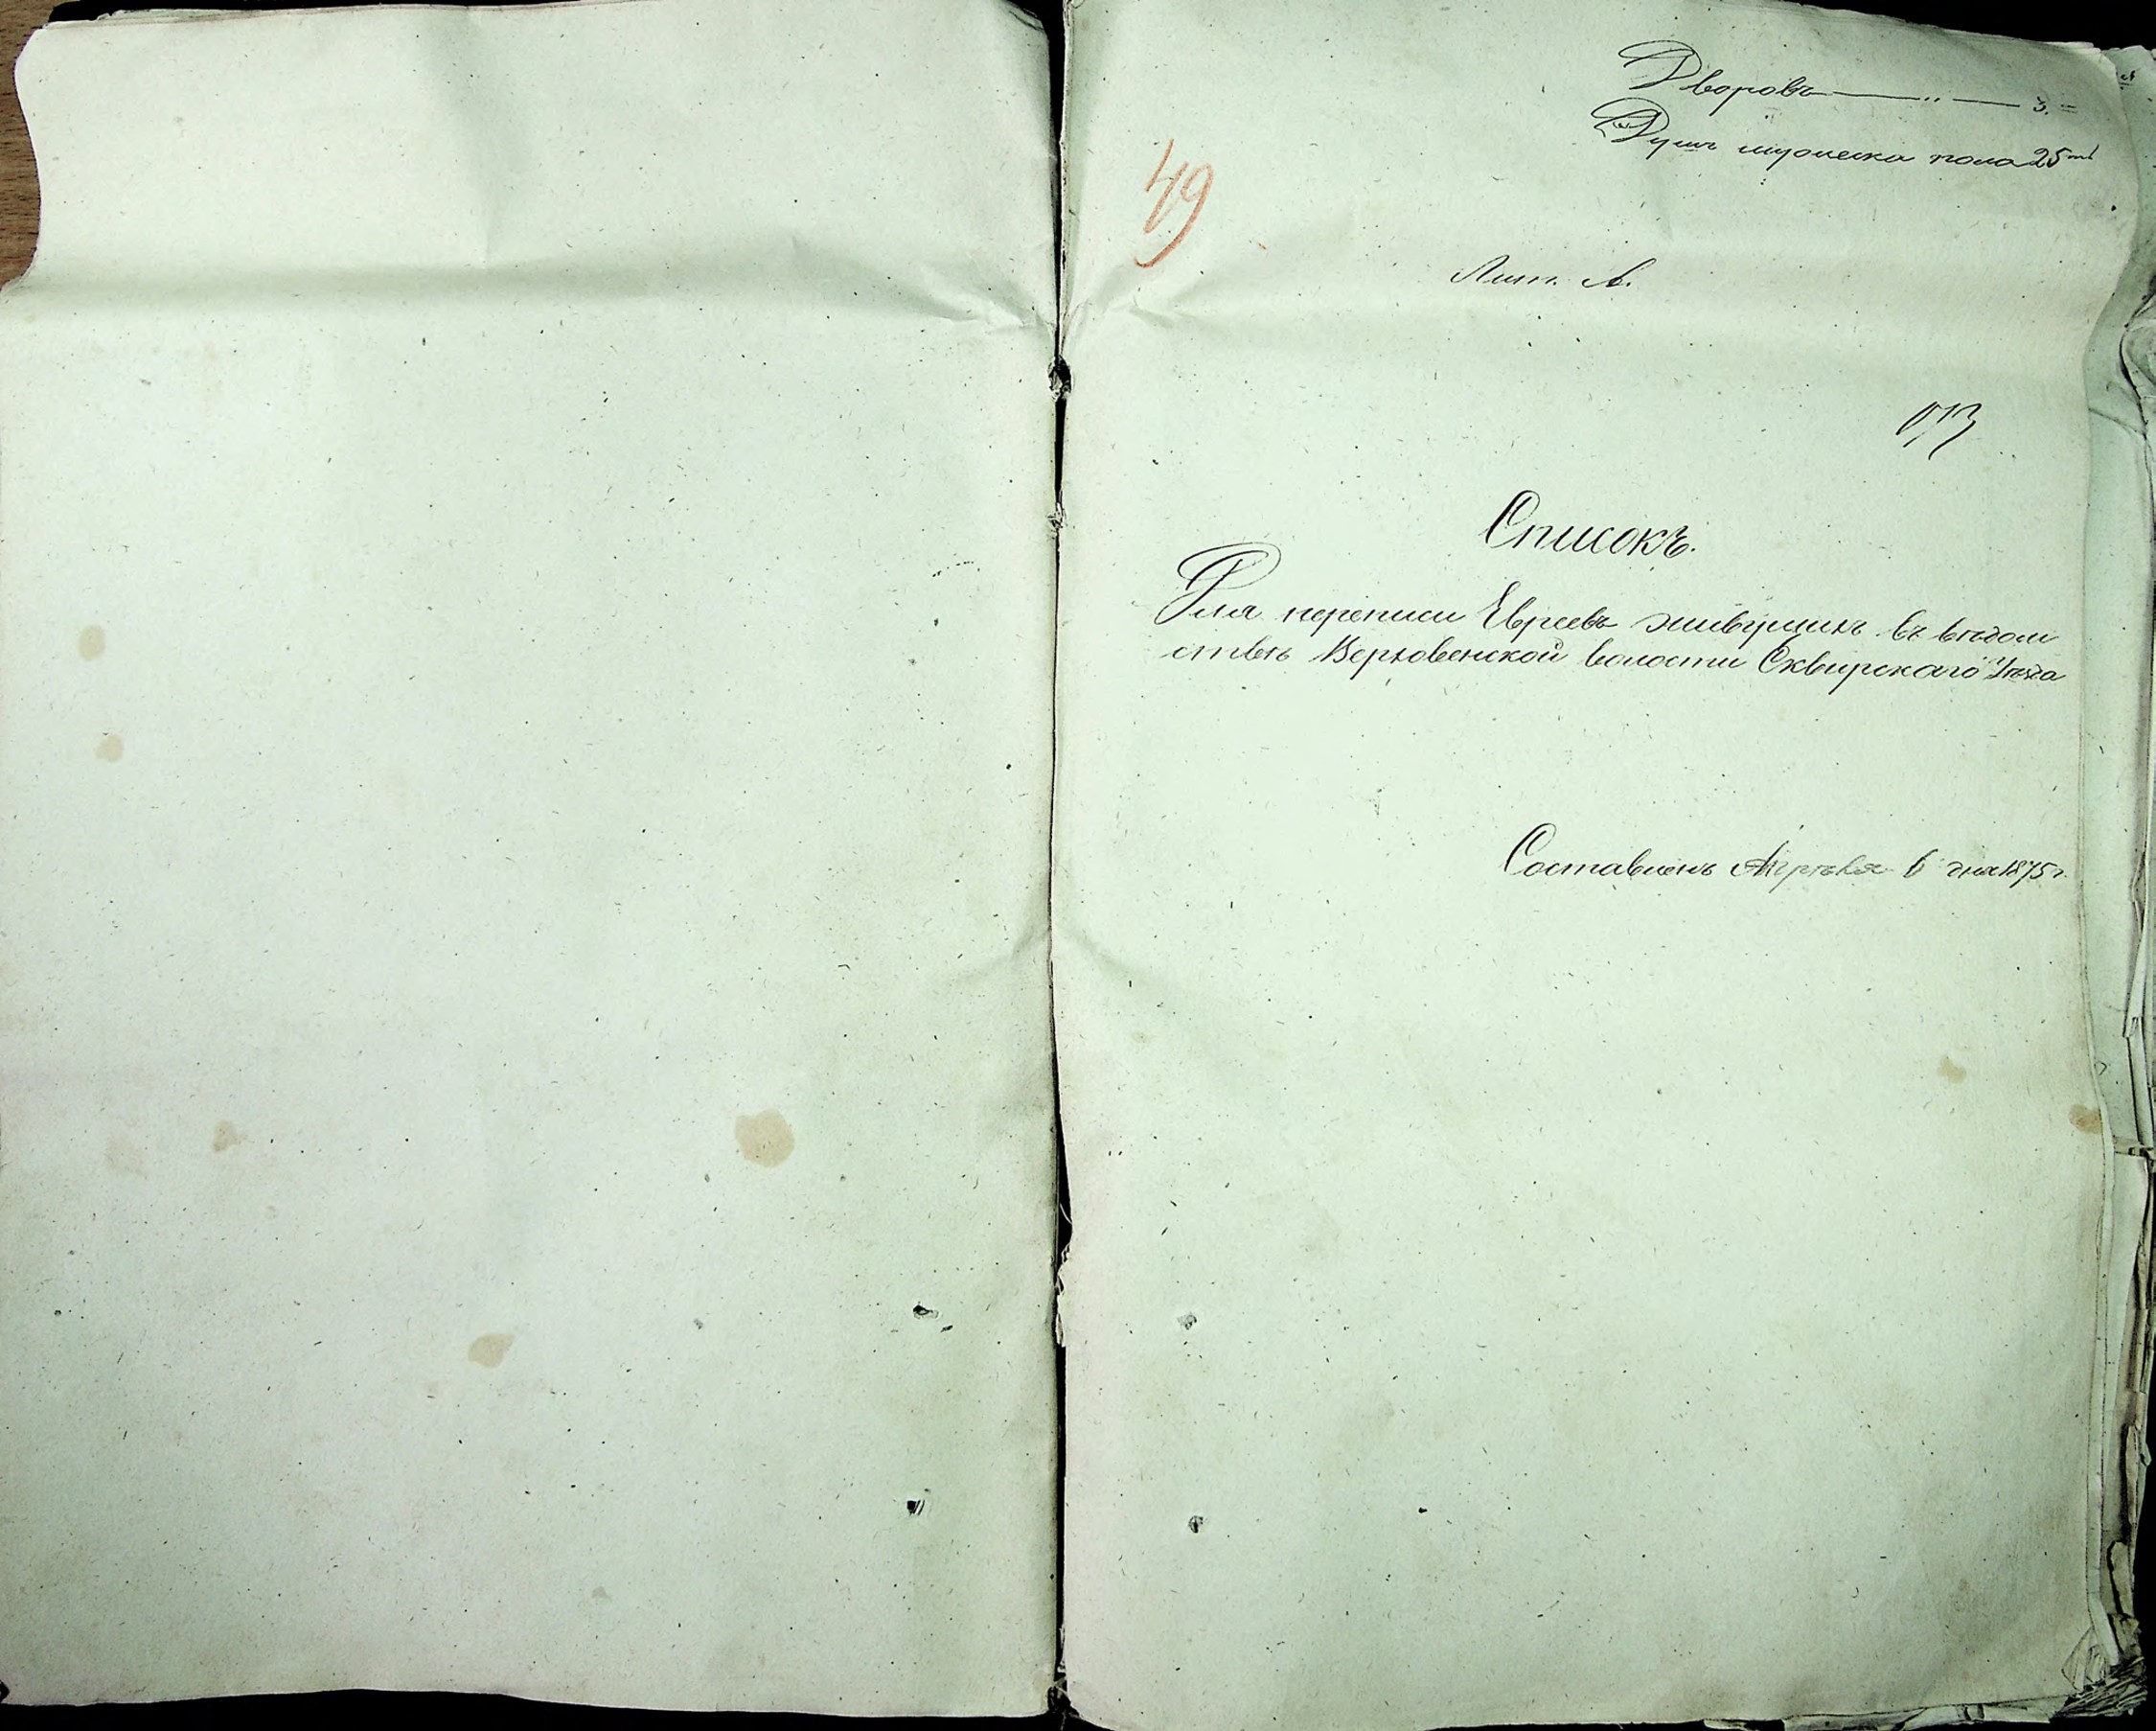 Дворовъ — „ — 3.
Душъ мужеска пола 25
49
Лит. А.
Списокъ.
Для переписи Евреевъ живущихъ въ вѣдом
ствѣ Верховенской волости Сквирскаго Уѣзда
Составленъ Апрѣля 6 дня 1875 г.